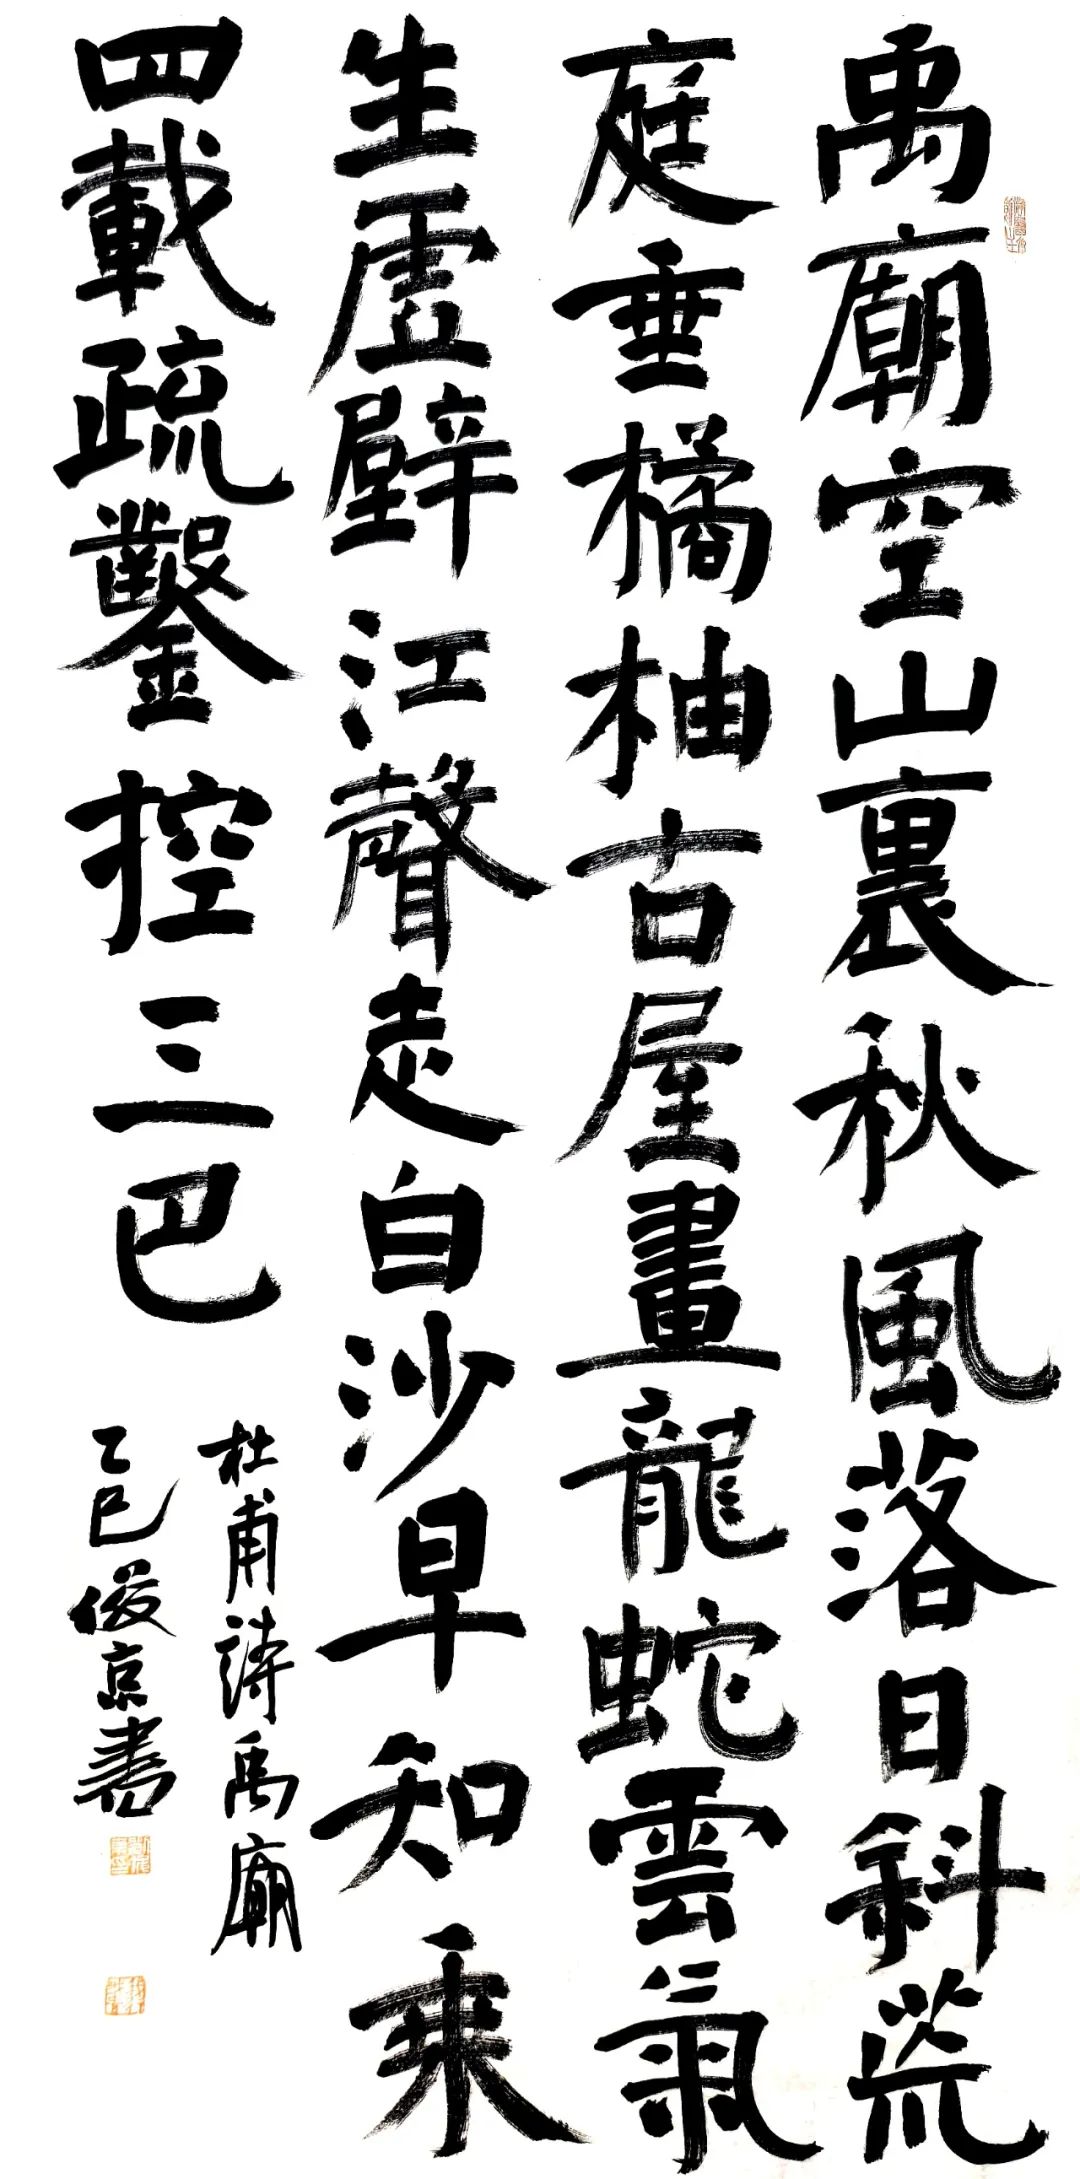 禹廟空山裏秋風落日斜荒
庭垂橘柚古屋畫龍蛇雲氣
生虛壁江聲走白沙早知乘
四載疏鑿控三巴
杜甫詩禹廟
乙巳俊京書